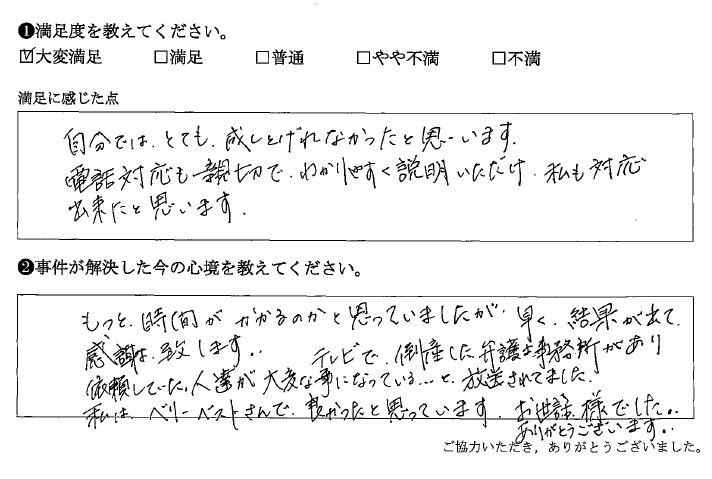 ❶満足度を教えてください。
☑大変満足 □満足 □普通 □やや不満 □不満
満足に感じた点
自分では、とても、成しとげれなかったと思います。
電話対応も親切で、わかりやすく説明いただけ、私も対応
出来たと思います。
❷事件が解決した今の心境を教えてください。
もっと、時間がかかるのかと思っていましたが、早く、結果が出て、
感謝致します。. テレビで、倒産した弁護士事務所があり
依頼していた人達が大変な事になっている…と、放送されてました。
私は、ベリーベストさんで、良かったと思っています。お世話様でした。.
ありがとうございます。.
ご協力いただき，ありがとうございました。